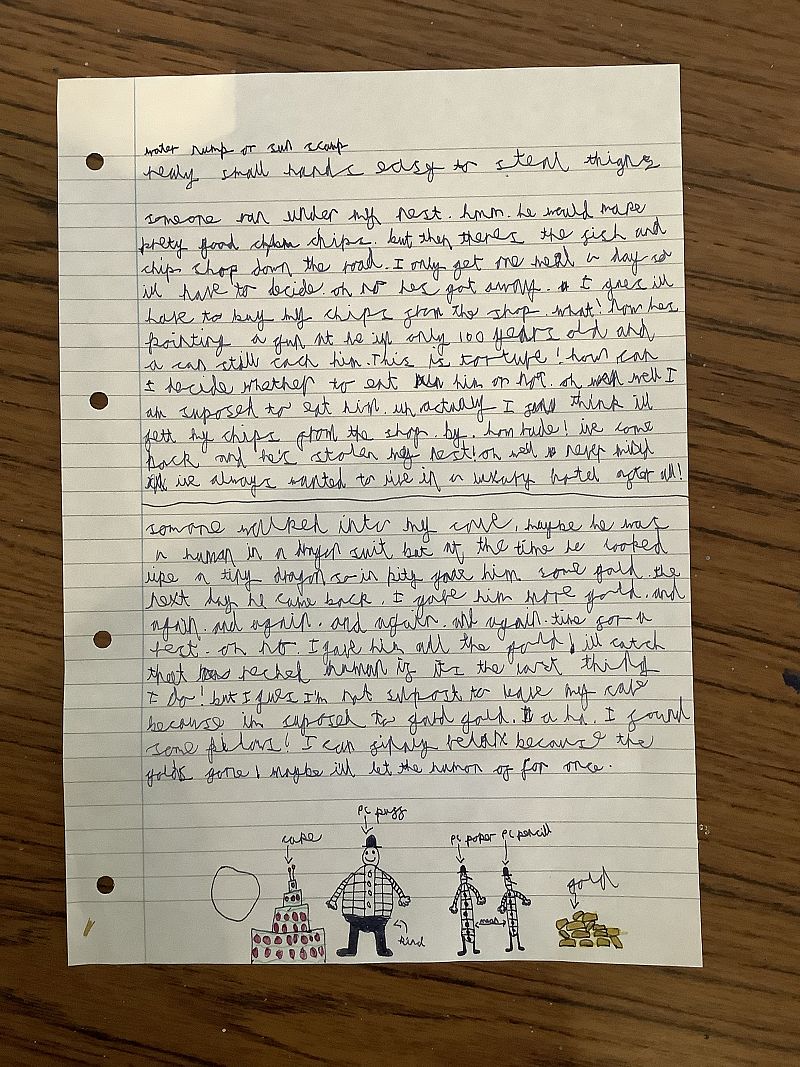 water nump or sun scamp
realy small hands easy to steal thigns
someone ran under my nest. hmm. he would make
prety good chips. but then theres the fish and
chip shop down the road. I only get one meal a day so
ill have to decide. oh no hes got away. I gues ill
have to buy my chips from the shop. what! now hes
pointing a gun at me im only 100 years old and
a can still cach him. This is torture! how can
I decide whether to eat him or not. oh well I
am suposed to eat him. uh actualy I think ill
fett my chips from the shop. by. how rude! ive come
back and he's stolen my nest! oh well never mind
ive always wanted to live in a luxury hotel after all!
somone walked into my cave, maybe he was
a human in a dragon suit but at the time he looked
like a tiny dragon so in pity gave him some gold. the
next day he came back. I gave him more gold. and
again. and again. and again. and again. time for a
rest. oh no. I gave him all the gold! ill catch
that reched human if its the last thing
I do! but I gues I'm not suipost to leave my cave
because im suposed to gard gold. a ha. I found
some pilows! I can finaly relax because the
golds gone! maybe ill let the human of for once.
pc pugg
cake
pc paper pc pencill
gold
mean
kind